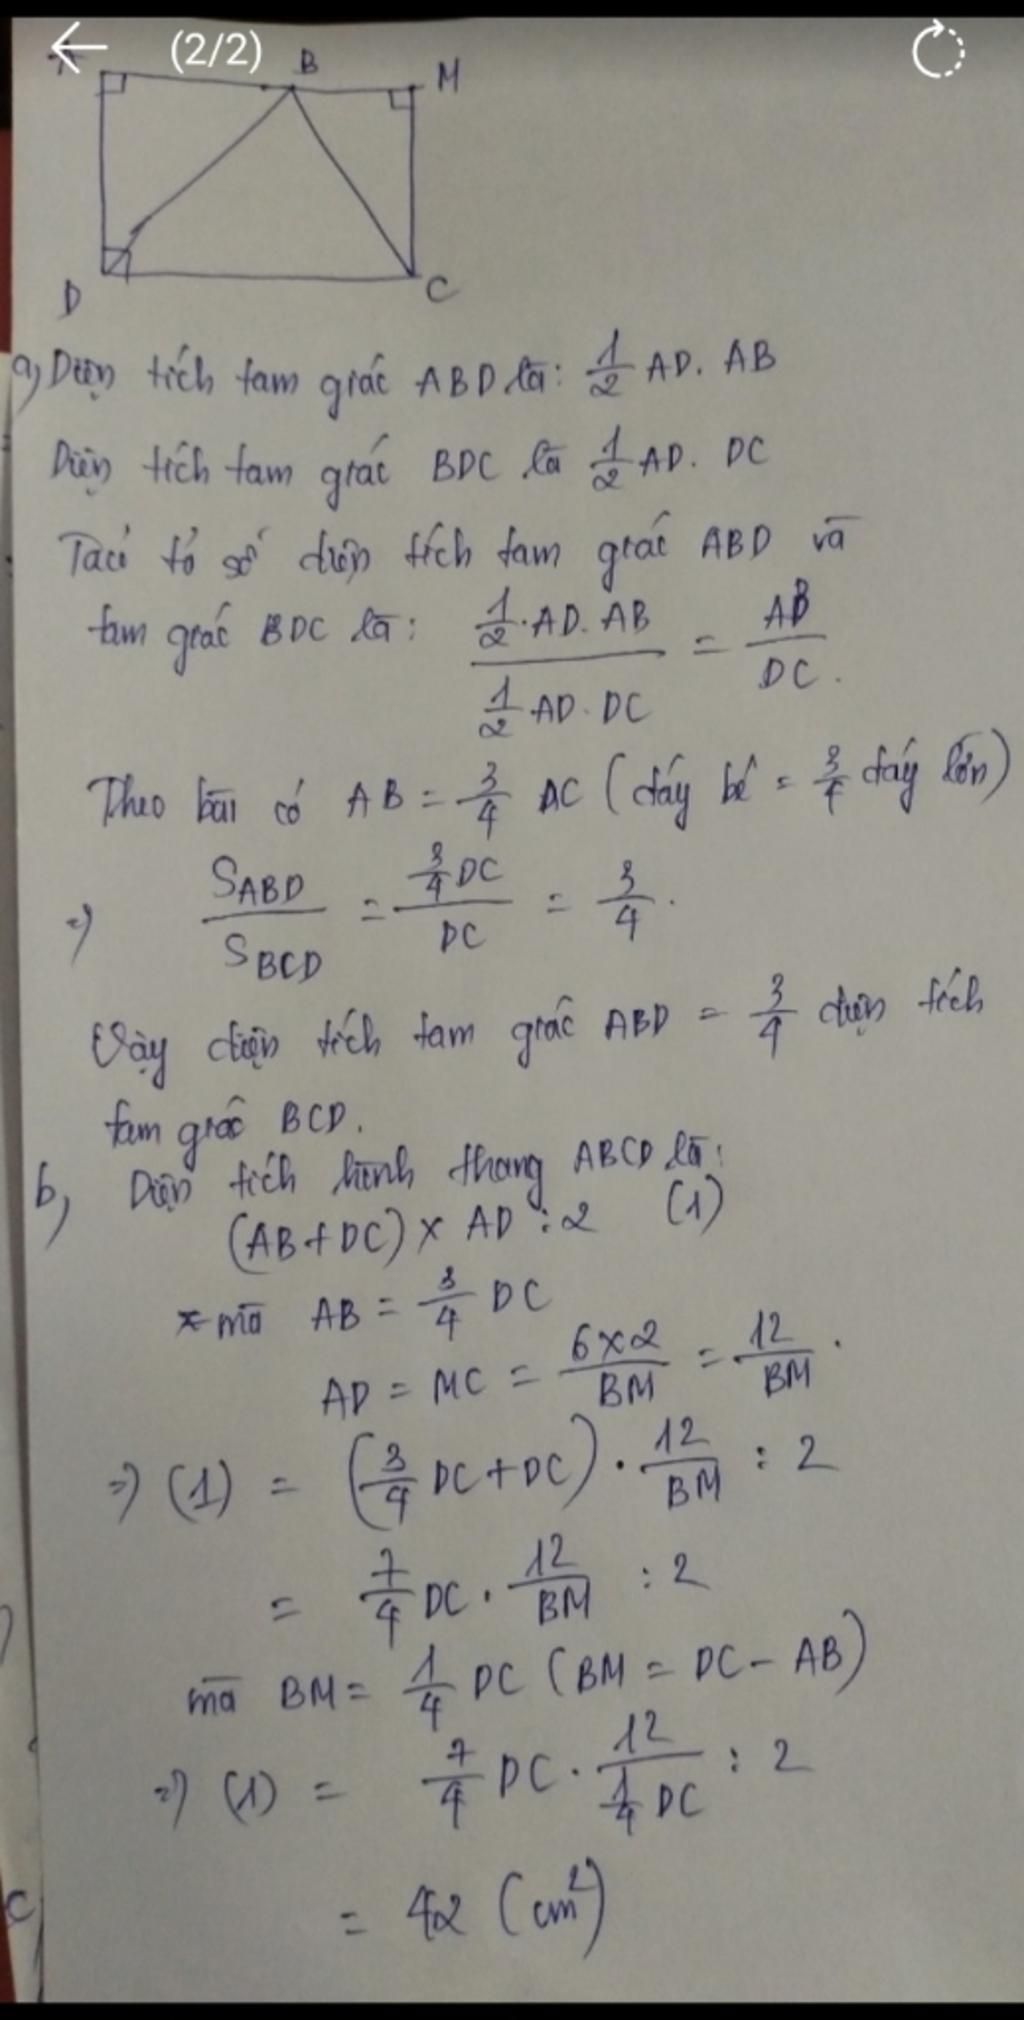 (2/2)
A B M
D C
a, Diện tích tam giác ABD là: 1/2 AD. AB
Diện tích tam giác BDC là 1/2 AD. DC
Ta có tỉ số diện tích tam giác ABD và
tam giác BDC là: (1/2 · AD. AB)/(1/2 AD · DC) = AB/DC.
Theo bài có AB = 3/4 DC (đáy bé = 3/4 đáy lớn)
=> S_ABD/S_BCD = (3/4 DC)/DC = 3/4.
Vậy diện tích tam giác ABD = 3/4 diện tích
tam giác BCD.
b, Diện tích hình thang ABCD là:
(AB+DC) x AD : 2 (1)
mà AB = 3/4 DC
AD = MC = (6x2)/BM = 12/BM.
=> (1) = (3/4 DC + DC) · 12/BM : 2
= 7/4 DC · 12/BM : 2
mà BM = 1/4 DC (BM = DC - AB)
=> (1) = 7/4 DC · 12/(1/4 DC) : 2
= 42 (cm²)